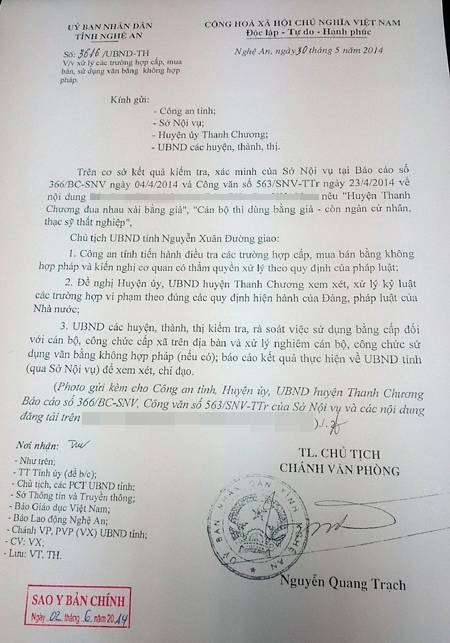 UỶ BAN NHÂN DÂN
TỈNH NGHỆ AN
Số: 3616/UBND-TH
V/v xử lý các trường hợp cấp, mua
bán, sử dụng văn bằng không hợp
pháp.
CỘNG HOÀ XÃ HỘI CHỦ NGHĨA VIỆT NAM
Độc lập - Tự do - Hạnh phúc
Nghệ An, ngày 30 tháng 5 năm 2014
Kính gửi:
- Công an tỉnh;
- Sở Nội vụ;
- Huyện ủy Thanh Chương;
- UBND các huyện, thành, thị.
Trên cơ sở kết quả kiểm tra, xác minh của Sở Nội vụ tại Báo cáo số
366/BC-SNV ngày 04/4/2014 và Công văn số 563/SNV-TTr ngày 23/4/2014 về
nội dung nêu "Huyện Thanh
Chương đua nhau xài bằng giả", "Cán bộ thì dùng bằng giả - còn ngàn cử nhân,
thạc sỹ thất nghiệp",
Chủ tịch UBND tỉnh Nguyễn Xuân Đường giao:
1. Công an tỉnh tiến hành điều tra các trường hợp cấp, mua bán bằng không
hợp pháp và kiến nghị cơ quan có thẩm quyền xử lý theo quy định của pháp luật;
2. Đề nghị Huyện ủy, UBND huyện Thanh Chương xem xét, xử lý kỷ luật
các trường hợp vi phạm theo đúng các quy định hiện hành của Đảng, pháp luật của
Nhà nước;
3. UBND các huyện, thành, thị kiểm tra, rà soát việc sử dụng bằng cấp đối
với cán bộ, công chức cấp xã trên địa bàn và xử lý nghiêm cán bộ, công chức sử
dụng văn bằng không hợp pháp (nếu có); báo cáo kết quả thực hiện về UBND tỉnh
(qua Sở Nội vụ) để xem xét, chỉ đạo.
(Photo gửi kèm cho Công an tỉnh, Huyện ủy, UBND huyện Thanh Chương
Báo cáo số 366/BC-SNV, Công văn số 563/SNV-TTr của Sở Nội vụ và các nội dung
đăng tải trên
Nơi nhận:
- Như trên;
- TT Tỉnh ủy (để b/c);
- Chủ tịch, các PCT UBND tỉnh;
- Sở Thông tin và Truyền thông;
- Báo Giáo dục Việt Nam;
- Báo Lao động Nghệ An;
- Chánh VP, PVP (VX) UBND tỉnh;
- CV: VX;
- Lưu: VT, TH.
TL. CHỦ TỊCH
CHÁNH VĂN PHÒNG
ỦY BAN NHÂN DÂN TỈNH NGHỆ AN
Nguyễn Quang Trạch
SAO Y BẢN CHÍNH
Ngày 02 tháng 6 năm 2014